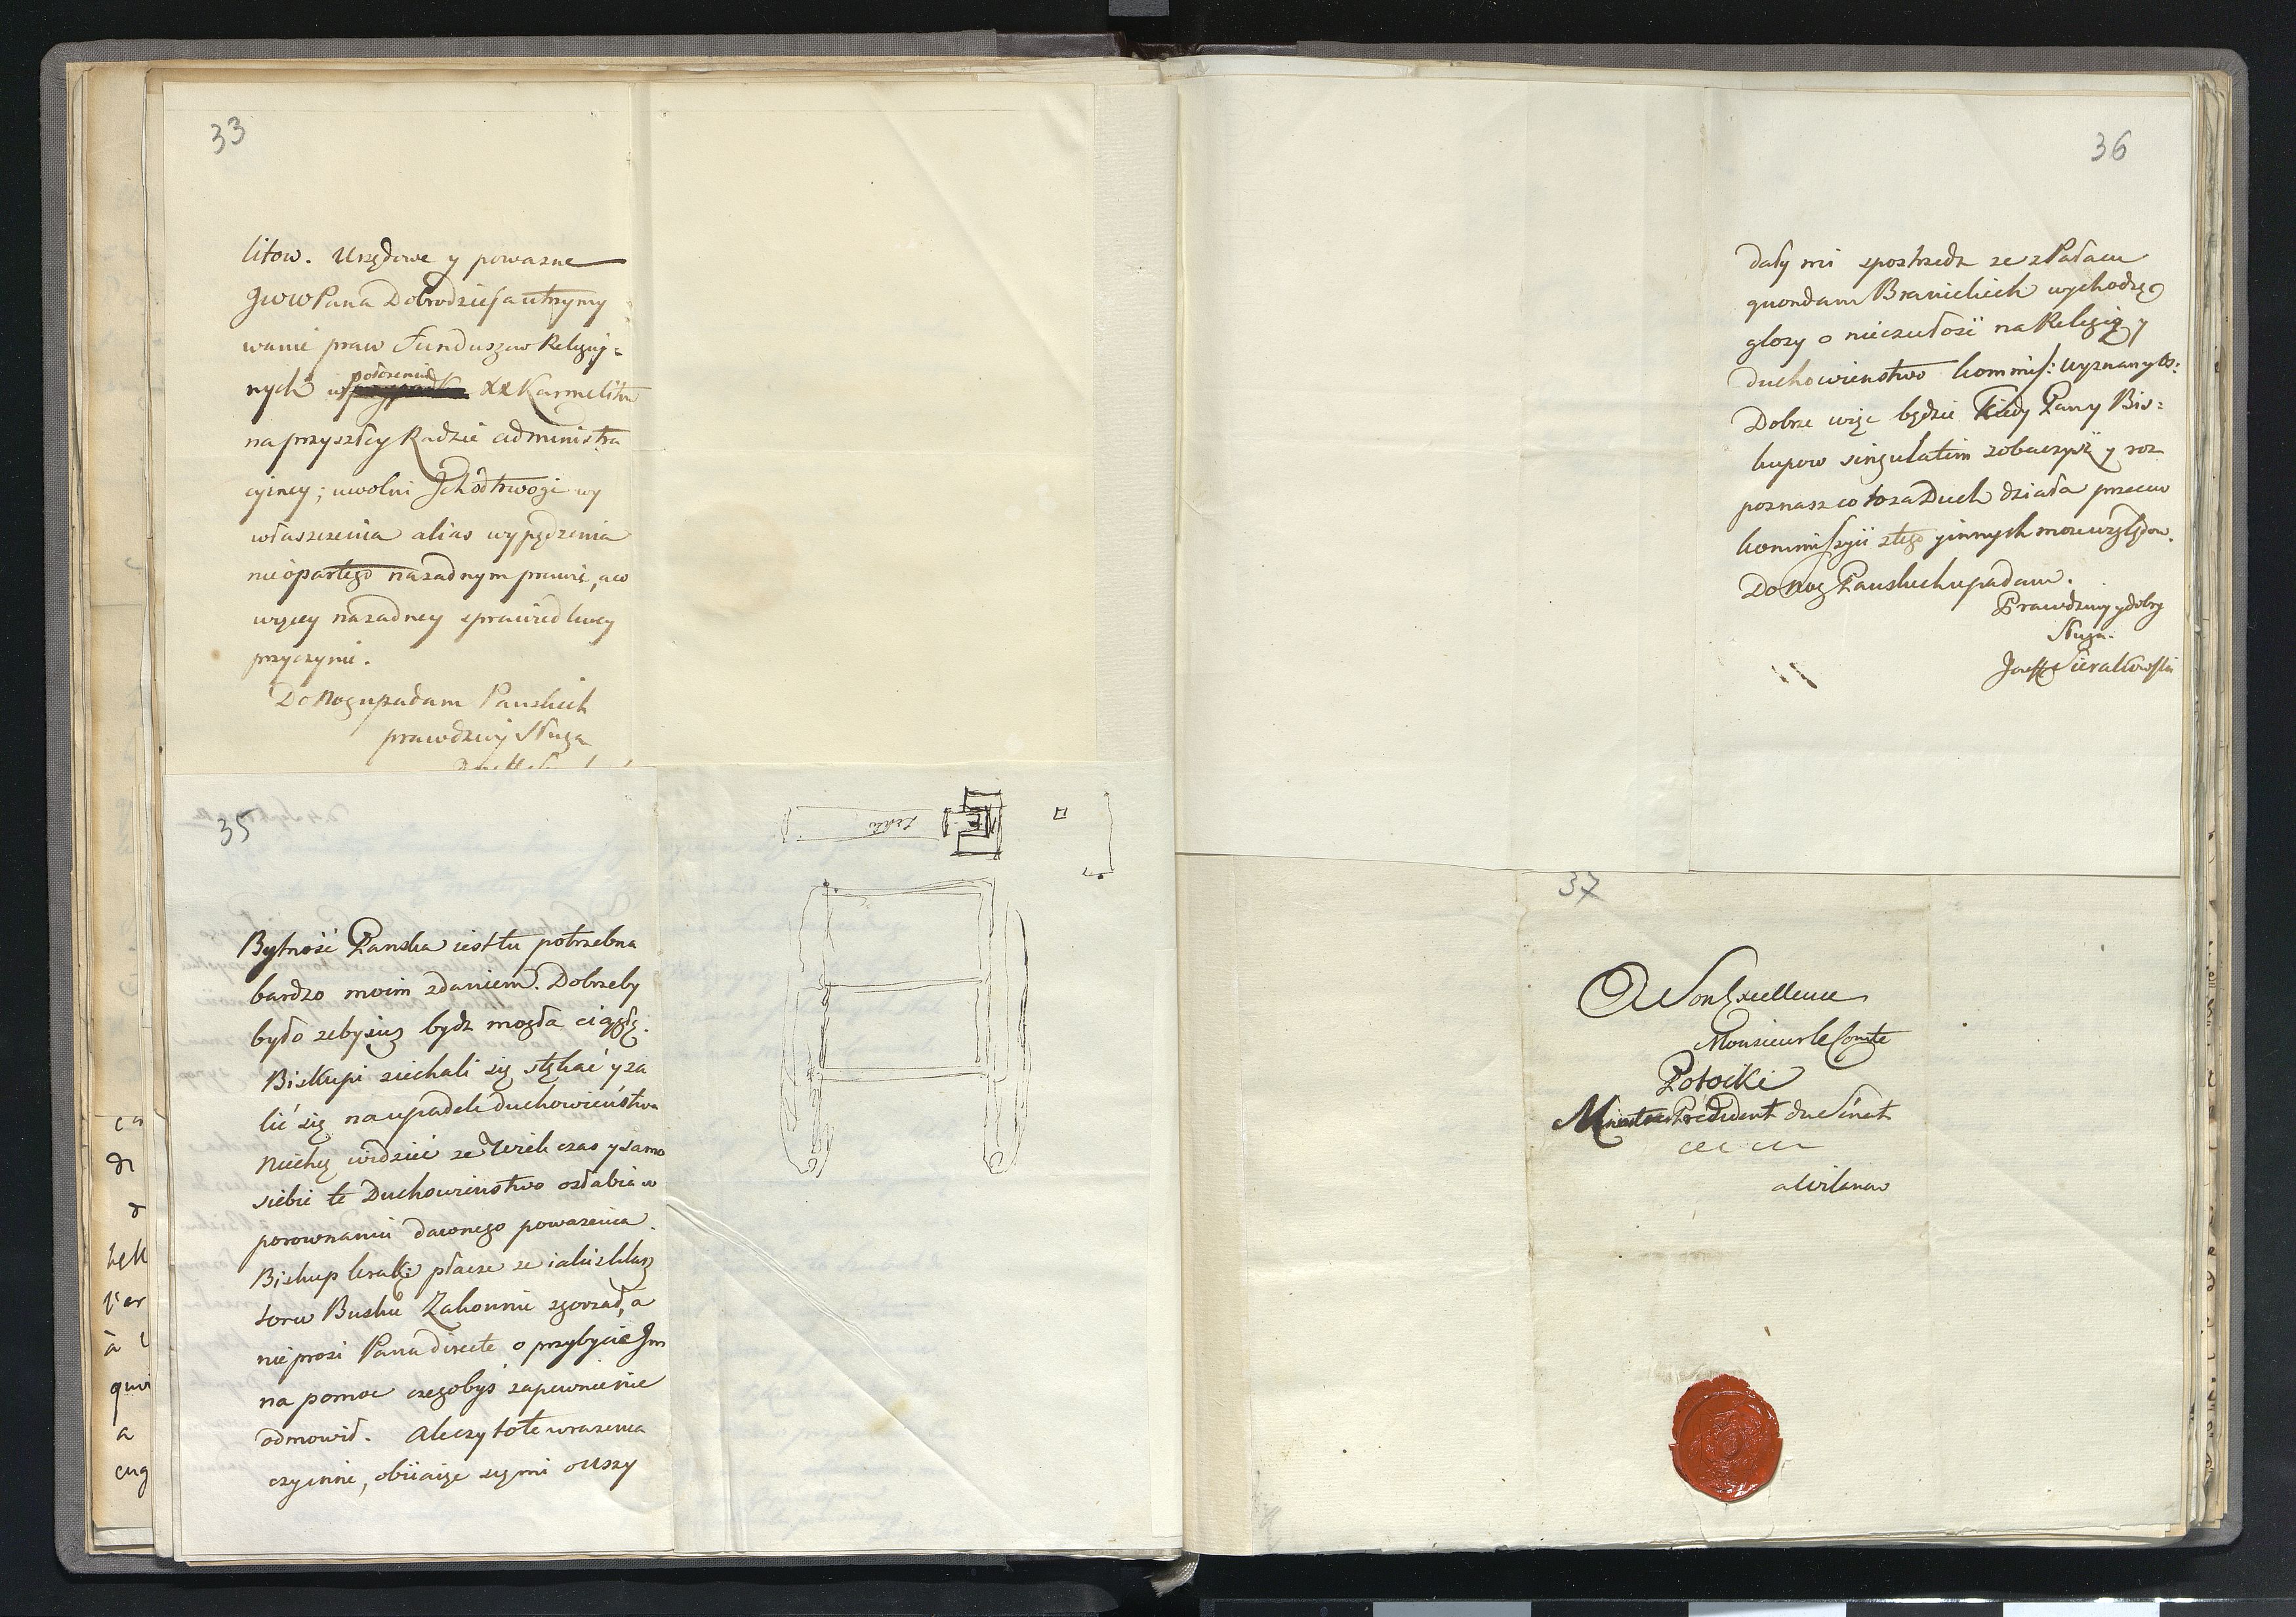 33
litow. Urzędowe y powazne
JWW Pana Dobrodzieja utrzymy
wanie praw Funduszow Religij=
nych w położeniu XX Karmelitow
na przyszłey Radzie administra
cyiney; uwolni Ich od trwogi wy
właszczenia alias wypędzenia
nieopartego nażadnym prawie, a co
więcey nażadney sprawiedliwey
przyczynie.
Do Nog upadam Panskich
prawdziwy Sługa
35
Bytność Panska iest tu potrzebna
bardzo moim zdaniem. Dobrzeby
było żeby iuz bydz mogła ciągłą.
Biskupi ziechali się stękać y ża
lić się na upadek duchowieństwa
niechcą widzieć ze Wiek czas y samo
siebie te Duchowienstwo osłabia w
porownaniu dawnego powazenia.
Biskup krak: płacze ze iakiś klasz
toru Busku Zakonnic zgorzał, a
nie prosi Pana directe o przybycie Im
na pomoc czegobyś zapewne nie
odmowił. Ale czy to te wrazenia
czynne, obiiaiące się mi o Uszy
36
dały mi spostrzedz ze z Pałacu
quondam Branickich wychodzą
głosy o nieczułości na Religią y
duchowienstwo kommis: wyznanyos:
Dobrze więc będzie kiedy Pany Bis=
kupow singulatim zobaczysz y roz
poznasz co to za Duch działa przeciw
kommissyii z tego y innych moze względow.
Do Nog Panskich upadam.
Prawdziwy y dobry
Sługa.
Jozeff Sierakowski
37
A Son Excellence
Monsieur le Comte
Potocki
Ministre Président du Sénat
a Wilanow